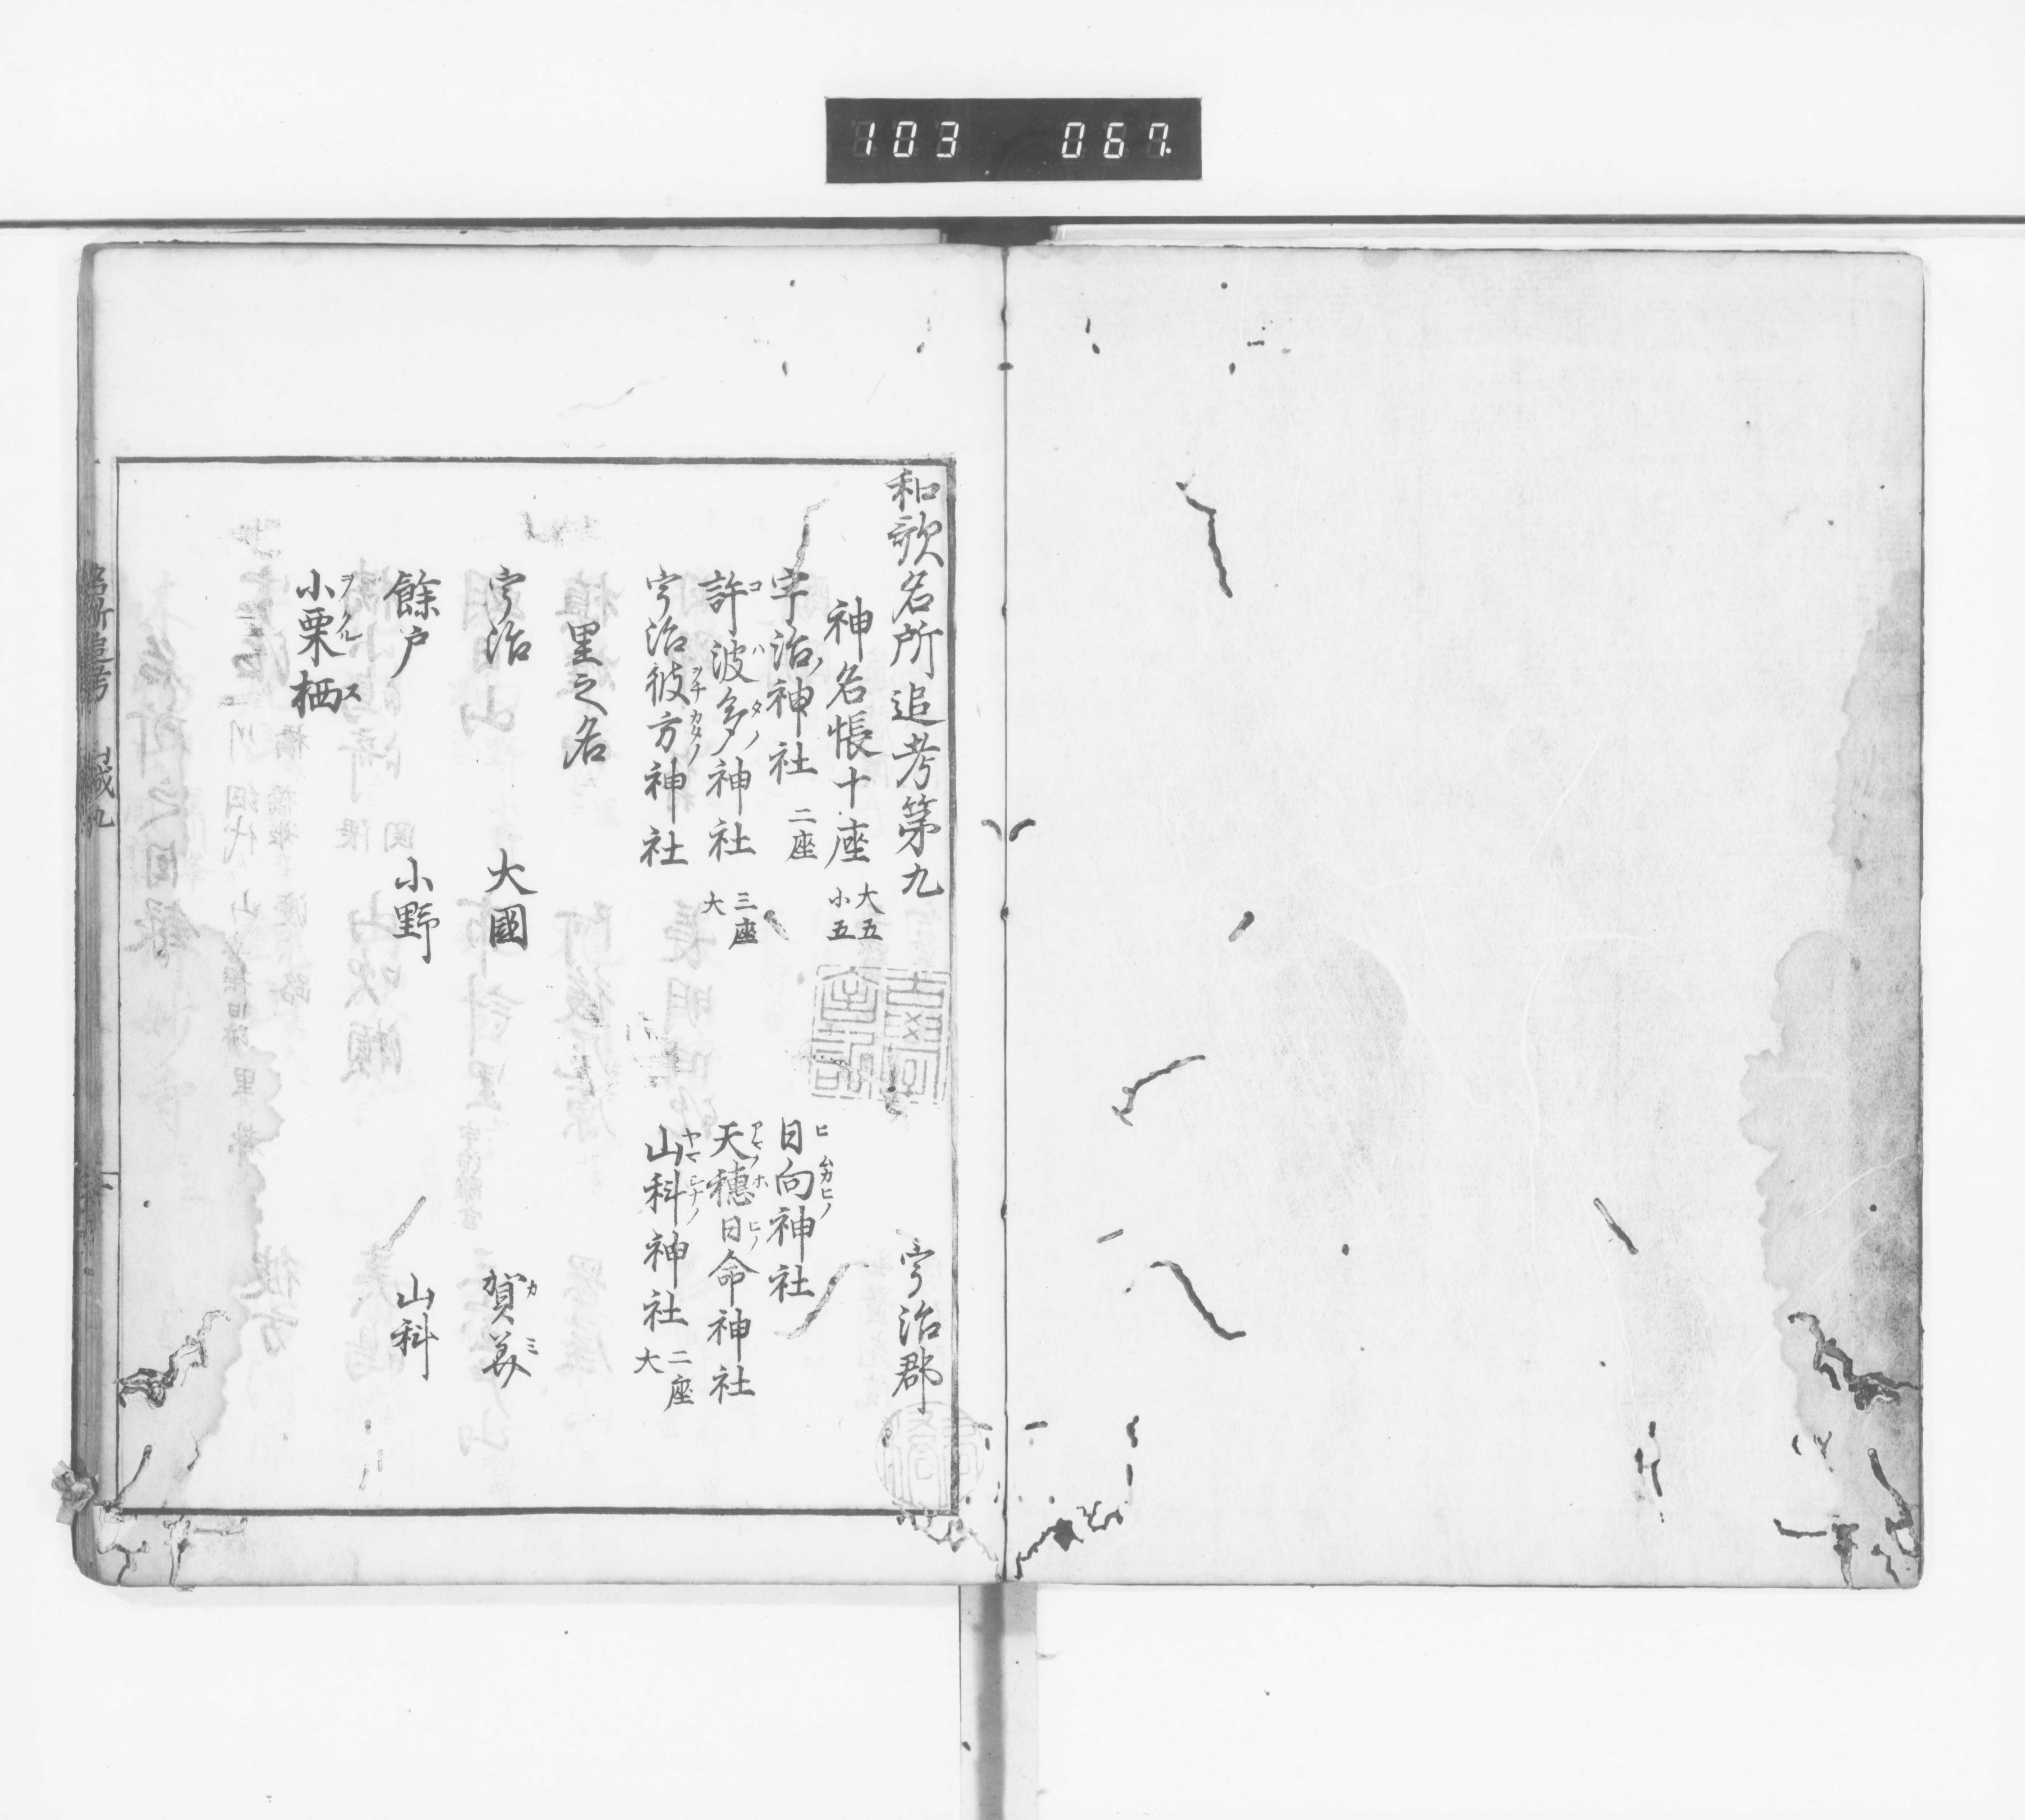 103 067
和歌名所追考第九 宇治郡
神名帳十座 大五 小五
宇治神社 二座 日向神社
許波多神社 三座 大 天穂日命神社
宇治彼方神社 山科神社 二座 大
里之名
宇治 大國 賀美
餘戸 小野 山科
小栗栖
名所追考